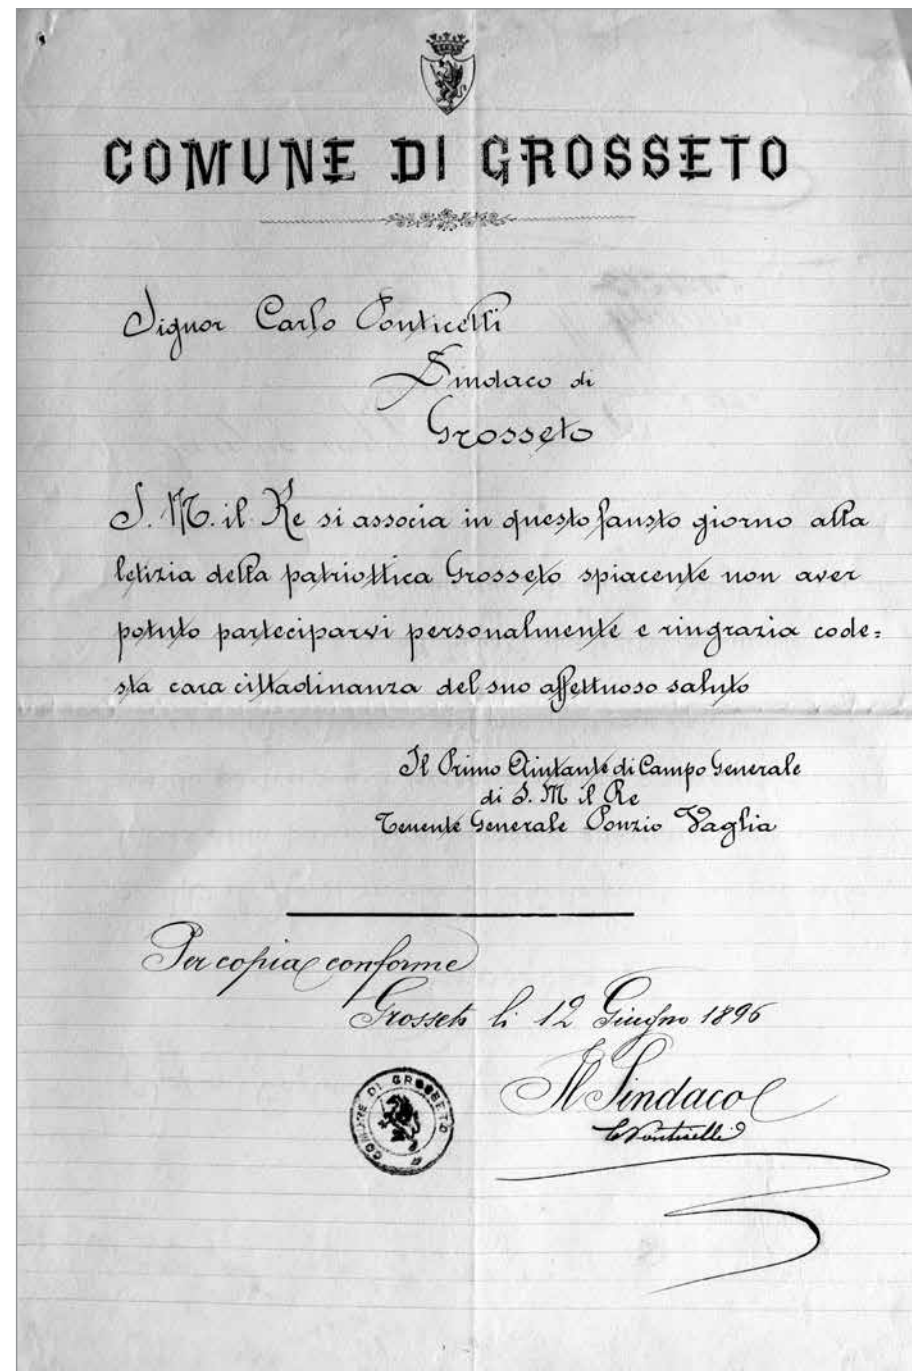 COMUNE DI GROSSETO
Signor Carlo Ponticelli
Sindaco di
Grosseto
S. M. il Re si associa in questo fausto giorno alla
letizia della patriottica Grosseto spiacente non aver
potuto parteciparvi personalmente e ringrazia code=
sta cara cittadinanza del suo affettuoso saluto
Il Primo Aiutante di Campo Generale
di S. M il Re
Tenente Generale Ponzio Vaglia
Per copia conforme
Grosseto li 12 Giugno 1896
COMUNE DI GROSSETO
Il Sindaco
C Ponticelli